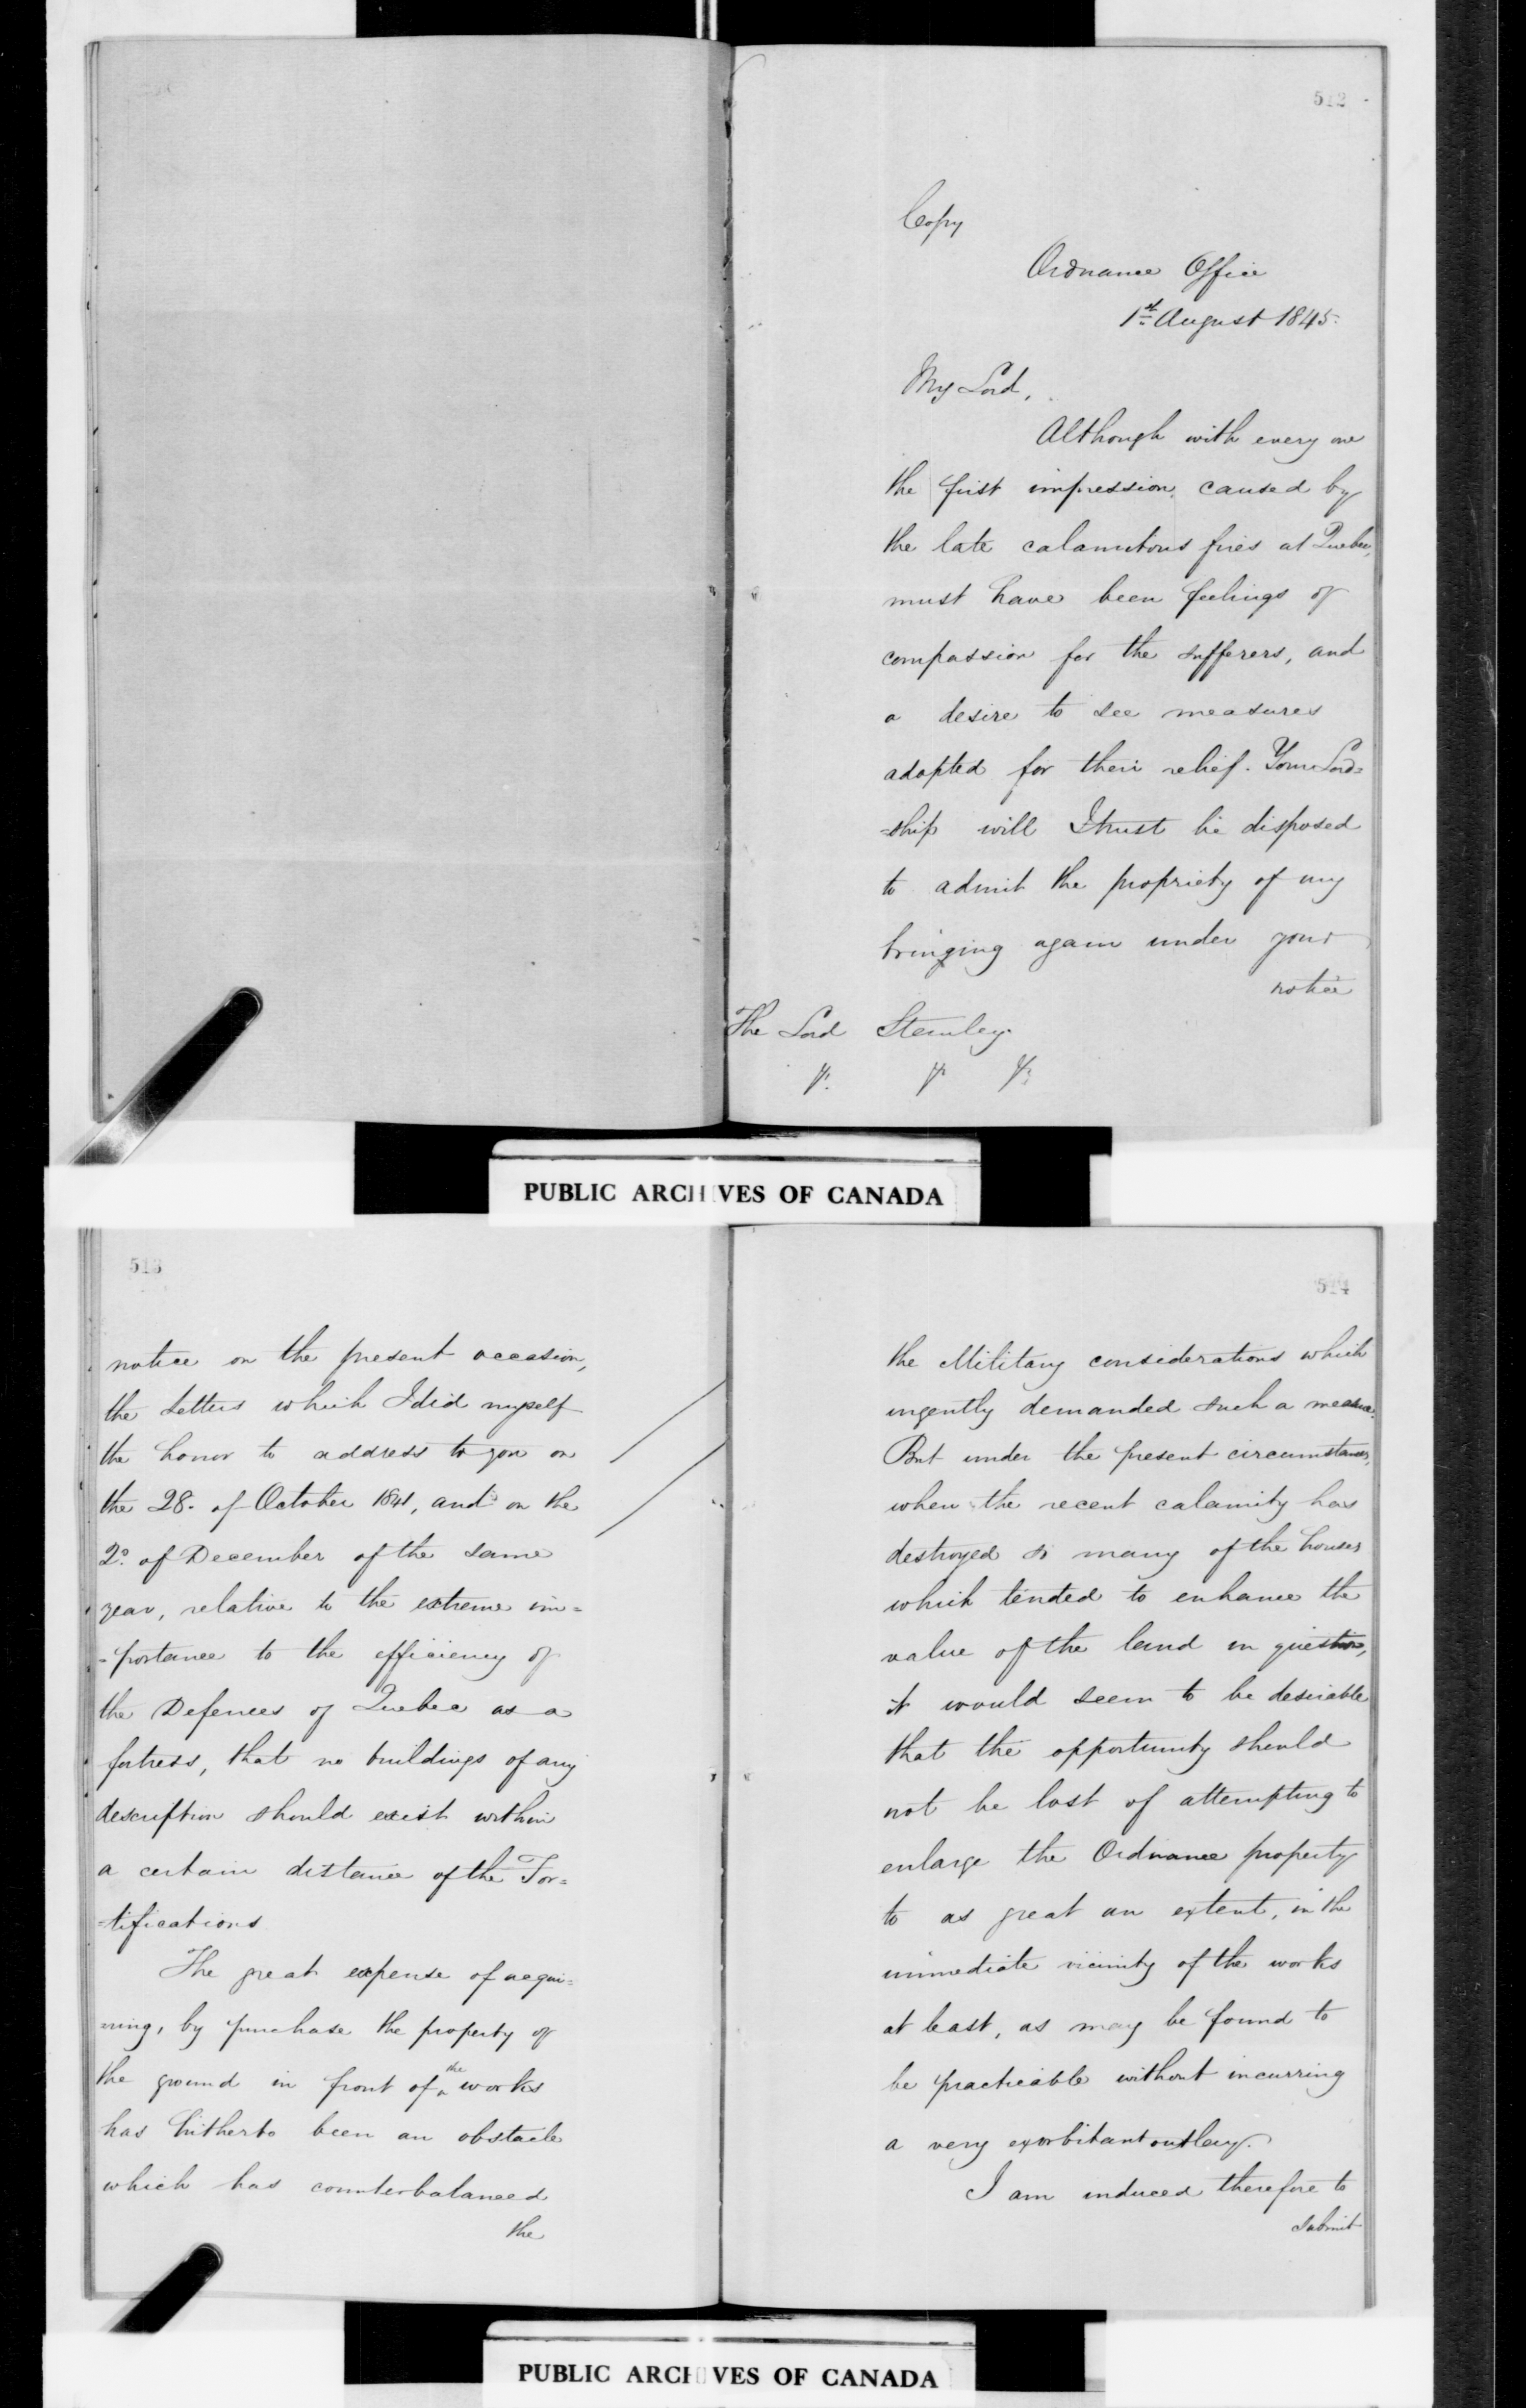 512
Copy
Ordnance Office
1st August 1845.
My Lord,
Although with every one
the first impression caused by
the late calamitous fires at Quebec,
must have been feelings of
compassion for the sufferers, and
a desire to see measures
adopted for their relief. Your Lord=
=ship will I trust be disposed
to admit the propriety of my
bringing again under your
notice
The Lord Stanley
&c. &c. &c.
PUBLIC ARCHIVES OF CANADA
513
notice on the present occasion,
the Letters which I did myself
the honor to address to you on
the 28. of October 1841, and on the
2d. of December of the same
year, relative to the extreme im=
=portance to the efficiency of
the Defences of Quebec as a
fortress, that no buildings of any
description should exist within
a certain distance of the For=
=tifications
The great expense of acqui=
=ring, by purchase the property of
the ground in front of the works
has hitherto been an obstacle
which has counterbalanced
the
514
the Military considerations which
urgently demanded such a measure.
But under the present circumstances,
when the recent calamity has
destroyed so many of the houses
which tended to enhance the
value of the land in question,
it would seem to be desirable
that the opportunity should
not be lost of attempting to
enlarge the Ordnance property
to as great an extent, in the
immediate vicinity of the works
at least, as may be found to
be practicable without incurring
a very exorbitant outlay.
I am induced therefore to
submit
PUBLIC ARCHIVES OF CANADA